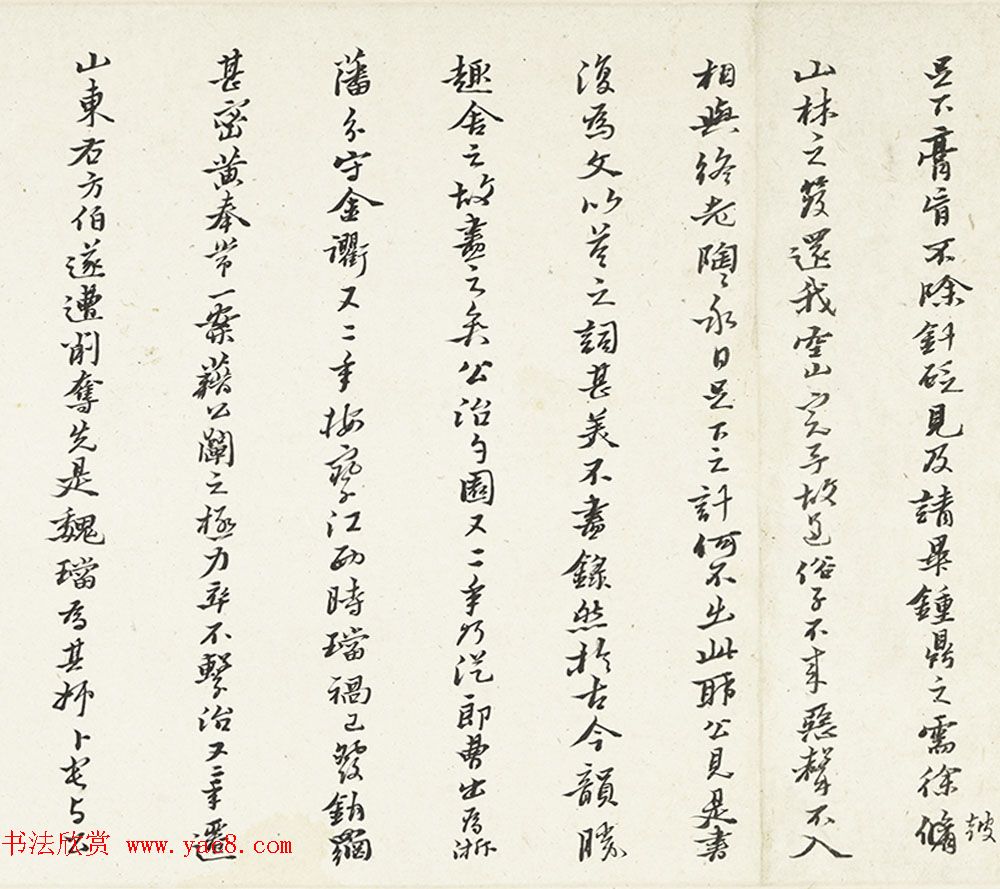 足下膏肓不除針砭見及請畢鍾鼎之需徐脩
山林之發還我空山完予故道俗子不來惡聲不入
相與終老陶〻永日足下之計何不出此耶公見是書
復為文以答之詞甚美不盡錄然於古今韻勝
趣舍之故盡之矣公治勺園又二年乃從郎曹出為浙
藩分守金衢又二年按察江西時璫禍已發鉤羅
甚密黃奉常一案藉公闡之極力卒不繫治又二年遷
山東右方伯遂遭削奪先是魏璫為其姊卜
书法欣赏 www.yac8.com